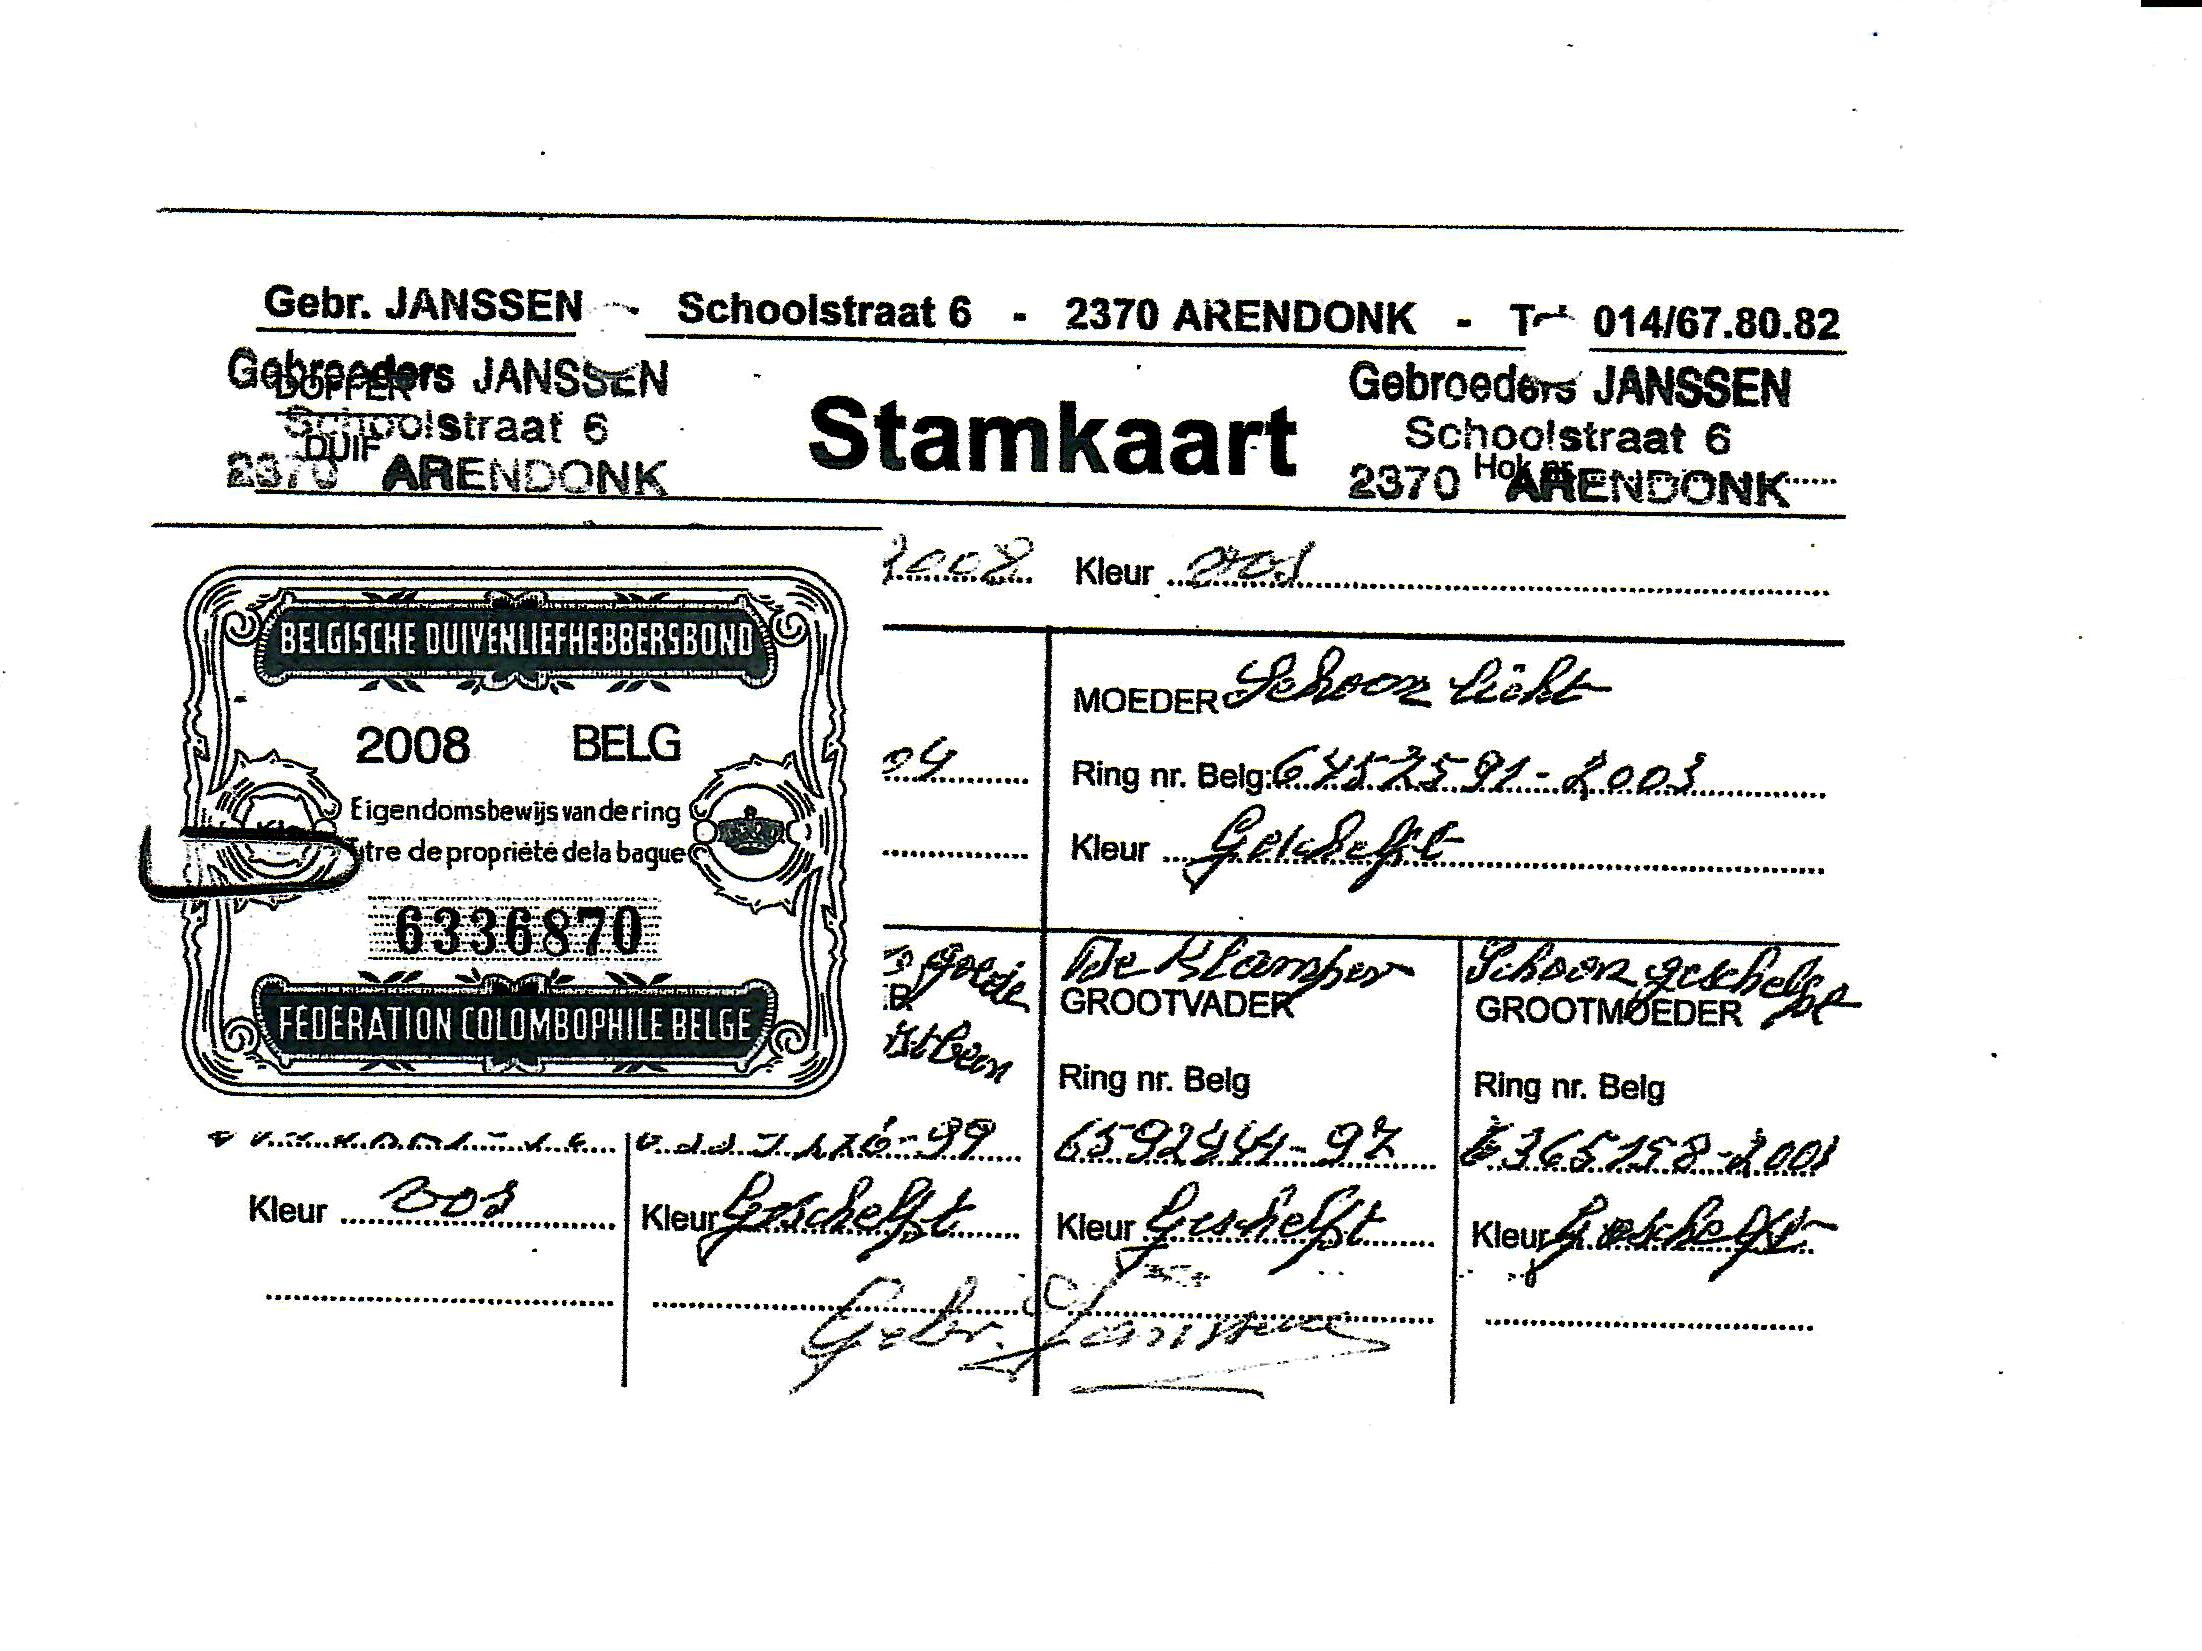 Gebr. JANSSEN - Schoolstraat 6 - 2370 ARENDONK - 014/67.80.82
Gebroeders JANSSEN
DOFFER
Schoolstraat 6
DUIF
2370 ARENDONK
Stamkaart
Gebroeders JANSSEN
Schoolstraat 6
Hok nr.
2370 ARENDONK
2008 Kleur vos
BELGISCHE DUIVENLIEFHEBBERSBOND
2008 BELG
Eigendomsbewijs van de ring
Titre de propriété de la bague
6336870
FEDERATION COLOMBOPHILE BELGE
04
MOEDER Schoon licht
Ring nr. Belg: 6452591-2003
Kleur Geschelft
goede
De Klamper
GROOTVADER
Ring nr. Belg
6592444-97
Kleur Geschelft
Schoon geschelft
GROOTMOEDER
Ring nr. Belg
6365158-2001
Kleur Geschelft
Kleur vos
26-99
Kleur Geschelft
Gebr. Janssen